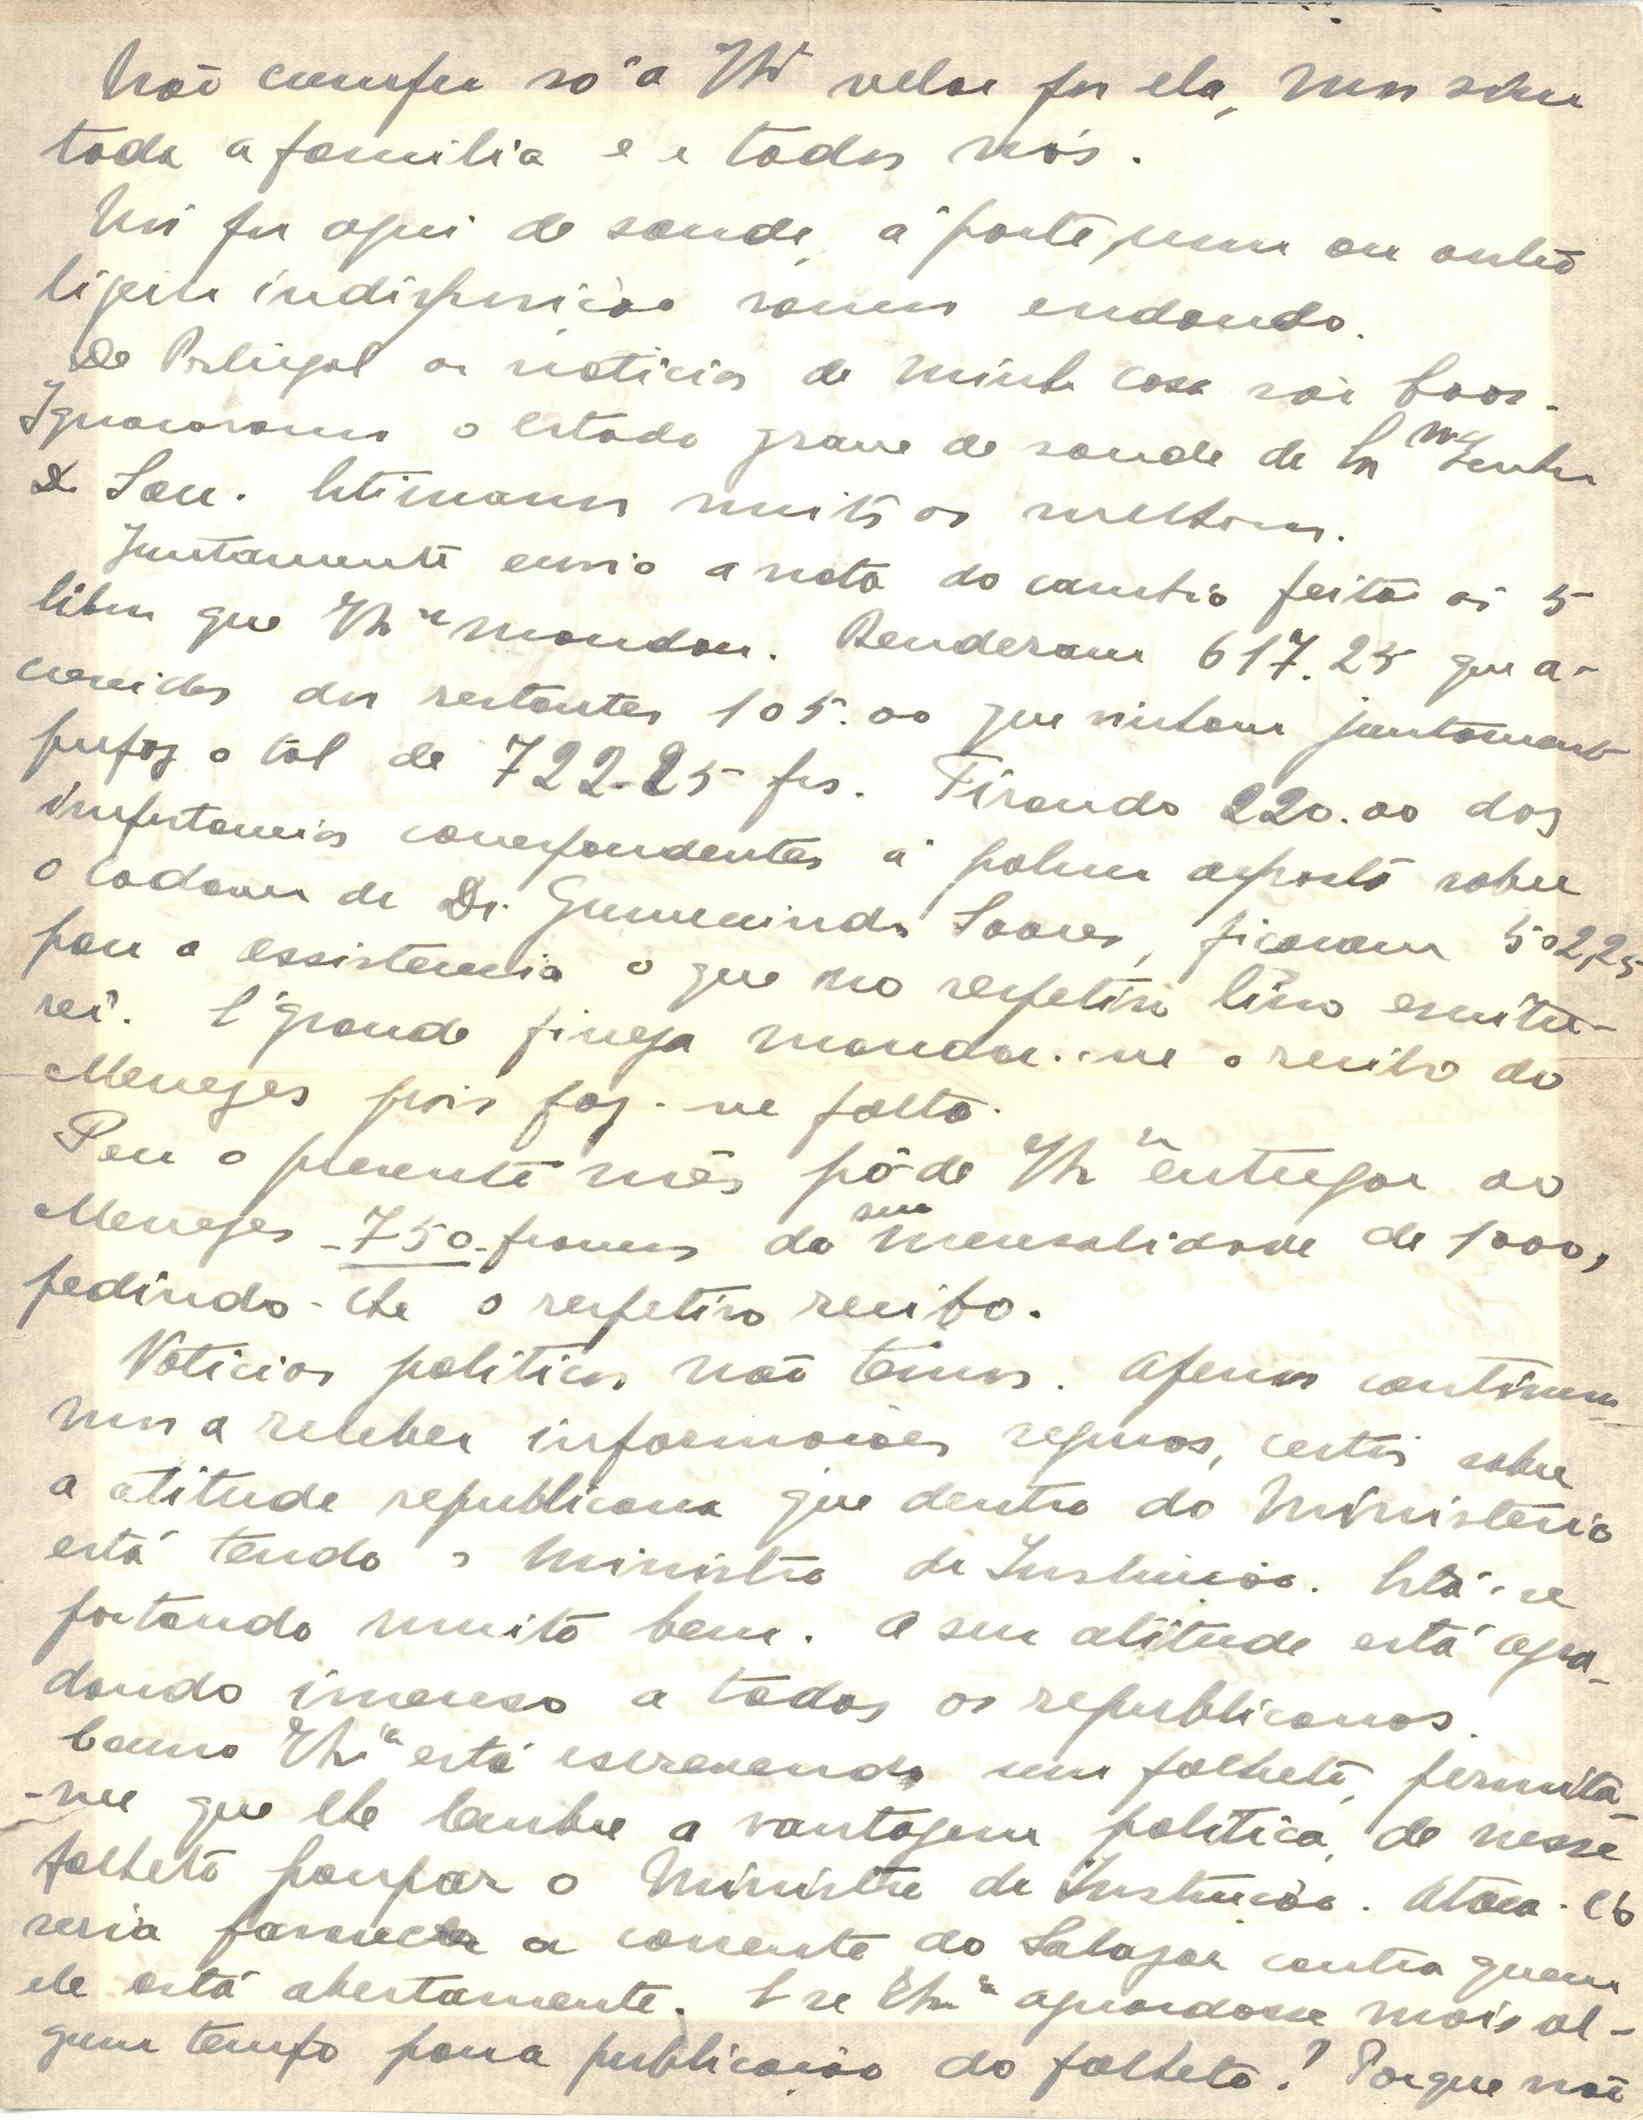 Não cumpre só a V. velar por ela, mas sim
toda a familia e a todos nós.
Nós por aqui de saude, á parte, uma ou outra
ligeira indisposição vamos andando.
De Portugal as noticias de minha casa são boas.
Ignoravamos o estado grave de saude de
Estimamos muito as melhoras.
Juntamente envio a nota do cambio feito ás 5
libras que V. Exª mandou. Renderam 617.25 que a-
crescidos dos restantes 105.00 que vinham juntamente
perfaz o tal de 722.25 frs. Tirando 220.00 das
importancias correspondentes á palma deposta sobre
o cadaver do Dr. Gumercindo Soares, ficaram 502,25
para a assistencia o que no respetivo livro escritu-
rei. É grande fineza mandar-me o recibo do
Menezes pois faz-me falta.
Para o presente mês póde V. Exª entregar ao
Menezes -750- francos da sua mensalidade de 1000,
pedindo-lhe o respetivo recibo.
Noticias politicas não temos. Apenas continua-
mos a receber informações seguras, certas sobre
a atitude republicana que dentro do Ministerio
está tendo o Ministro da Instrução. Está-se
portando muito bem. A sua atitude está agra-
dando imenso a todos os republicanos.
Como V. Exª está escrevendo um folheto, permita-
-me que lhe lembre a vantagem politica, de nesse
folheto poupar o Ministro da Instrução. Ataca-lo
seria favorecer a corrente do Salazar contra quem
ele está abertamente. E se V. Exª aguardasse mais al-
gum tempo para a publicação do folheto? Porque não